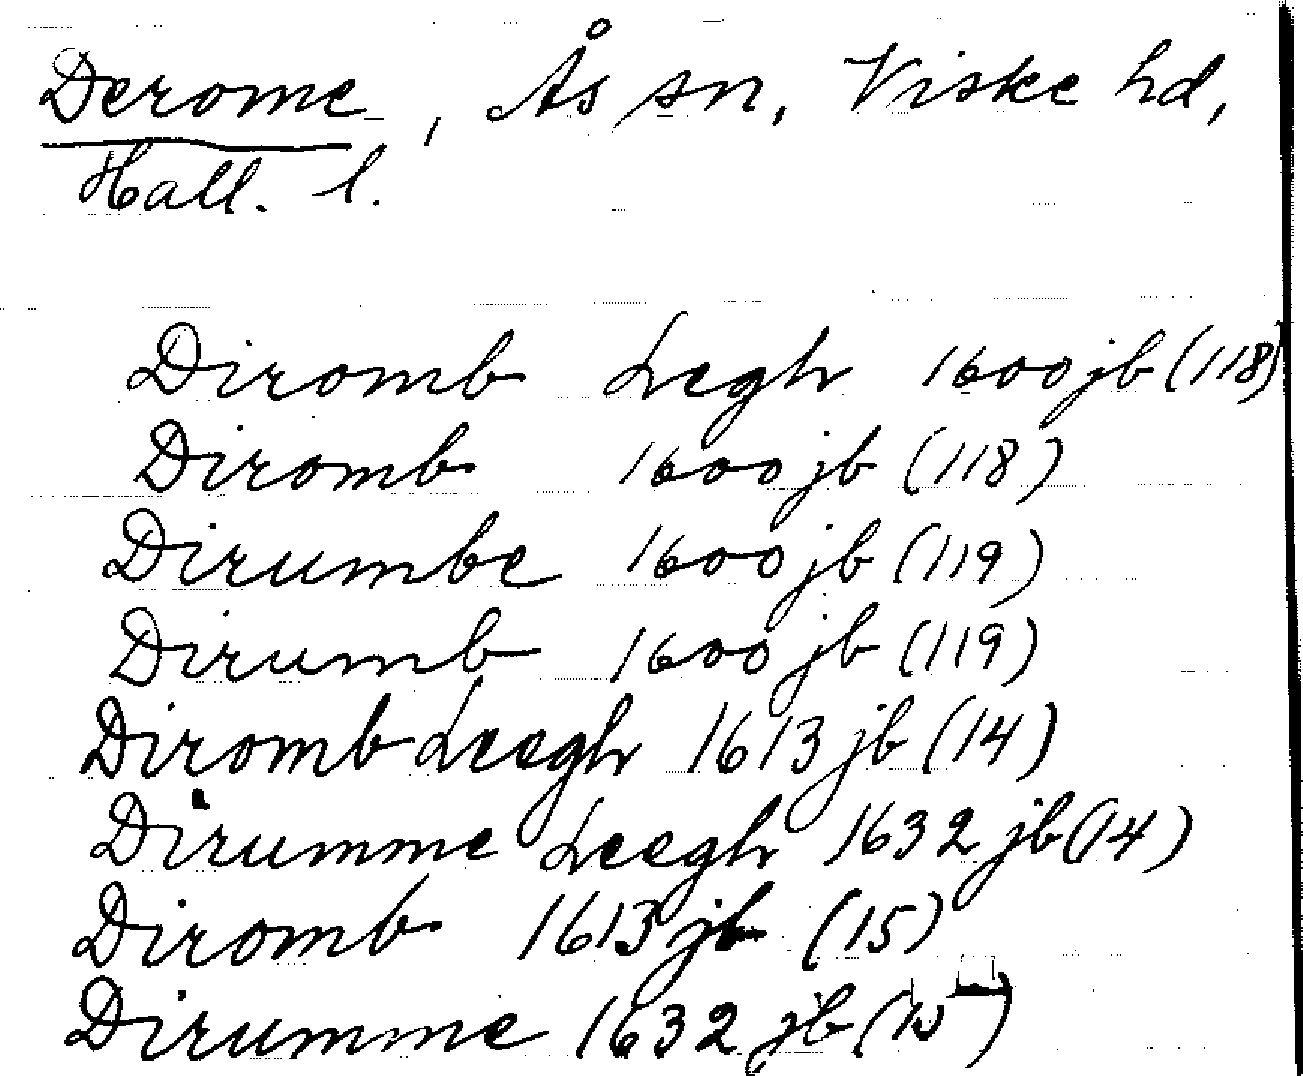 Derome, Ås sn, Viske hd,
Hall. l.
Diromb Legh 1600 jb (118)
Diromb 1600 jb (118)
Dirumbe 1600 jb (119)
Dirumb 1600 jb (119)
Diromb Leegh 1613 jb (14)
Dirumme Leegh 1632 jb (14)
Diromb 1613 jb (15)
Dirumme 1632 jb (15)